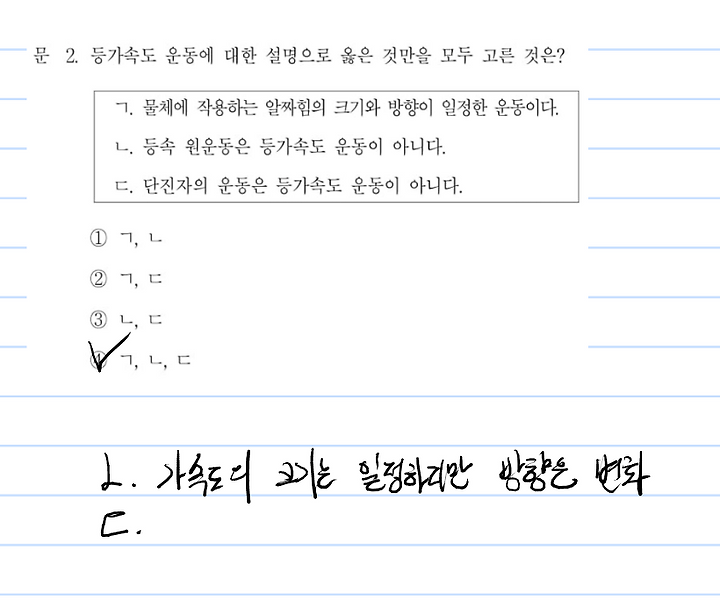 문 2. 등가속도 운동에 대한 설명으로 옳은 것만을 모두 고른 것은?
ㄱ. 물체에 작용하는 알짜힘의 크기와 방향이 일정한 운동이다.
ㄴ. 등속 원운동은 등가속도 운동이 아니다.
ㄷ. 단진자의 운동은 등가속도 운동이 아니다.
① ㄱ, ㄴ
② ㄱ, ㄷ
③ ㄴ, ㄷ
④ ㄱ, ㄴ, ㄷ
ㄴ. 가속도의 크기는 일정하지만 방향은 변화
ㄷ.